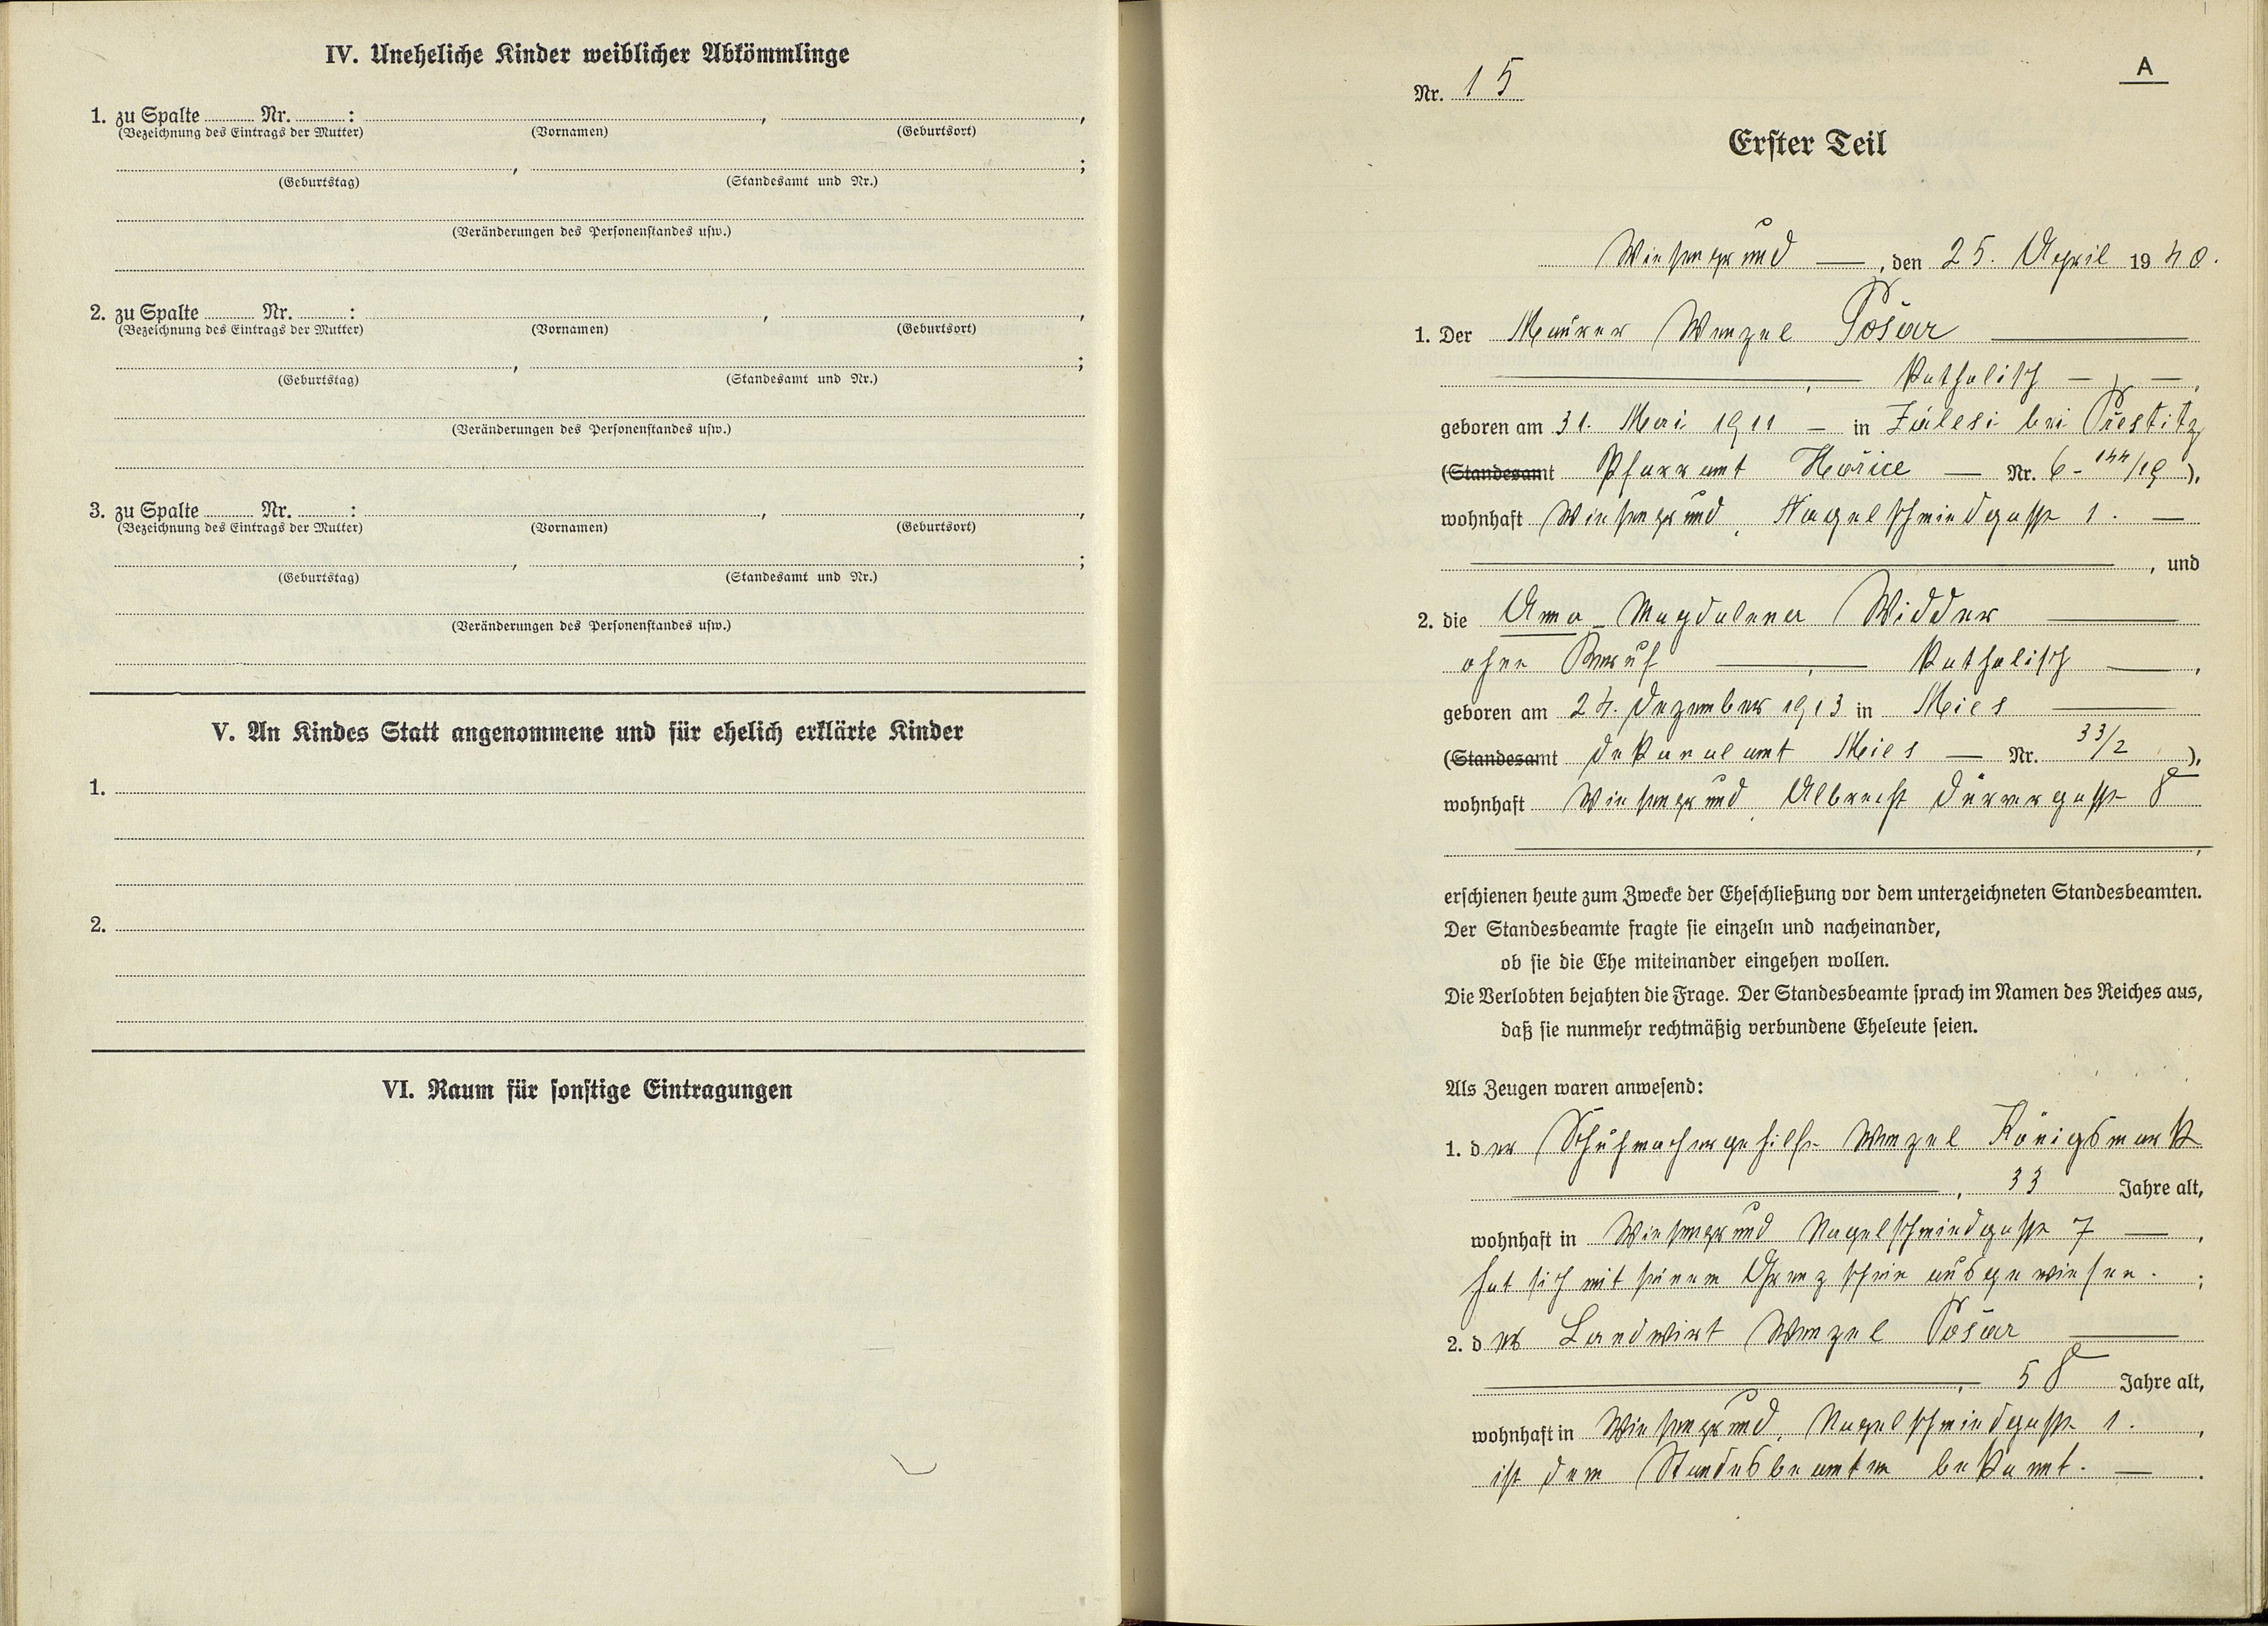 IV. Uneheliche Kinder weiblicher Abkömmlinge
1. zu Spalte ........ Nr. ........ : , ,
(Bezeichnung des Eintrags der Mutter) (Vornamen) (Geburtsort)
, ;
(Geburtstag) (Standesamt und Nr.)
(Veränderungen des Personenstandes usw.)
2. zu Spalte ........ Nr. ........ : , ,
(Bezeichnung des Eintrags der Mutter) (Vornamen) (Geburtsort)
, ;
(Geburtstag) (Standesamt und Nr.)
(Veränderungen des Personenstandes usw.)
3. zu Spalte ........ Nr. ........ : , ,
(Bezeichnung des Eintrags der Mutter) (Vornamen) (Geburtsort)
, ;
(Geburtstag) (Standesamt und Nr.)
(Veränderungen des Personenstandes usw.)
V. An Kindes Statt angenommene und für ehelich erklärte Kinder
1.
2.
VI. Raum für sonstige Eintragungen
A
Nr. 15
Erster Teil
Wiesengrund —, den 25. April 1940.
1. Der Maurer Wenzel Pošar —
—, — Katholisch —
geboren am 31. Mai 1911 — in Zálesi bei Přestitz
(Standesamt Pfarramt Hořice — Nr. 6-144/19),
wohnhaft Wiesengrund, Nagelschmiedgasse 1. —
—, und
2. die Anna Magdalena Widder —
ohne Beruf —, — Katholisch —,
geboren am 24. Dezember 1913 in Mies —
(Standesamt Dekanalamt Mies — Nr. 33/2),
wohnhaft Wiesengrund, Albrecht Dürergasse 8
—,
erschienen heute zum Zwecke der Eheschließung vor dem unterzeichneten Standesbeamten.
Der Standesbeamte fragte sie einzeln und nacheinander,
ob sie die Ehe miteinander eingehen wollen.
Die Verlobten bejahten die Frage. Der Standesbeamte sprach im Namen des Reiches aus,
daß sie nunmehr rechtmäßig verbundene Eheleute seien.
Als Zeugen waren anwesend:
1. der Schuhmachergehilfe Wenzel Königsmark
—, 33 Jahre alt,
wohnhaft in Wiesengrund Nagelschmiedgasse 7 —,
hat sich mit seinem Grenzschein ausgewiesen. ;
2. der Landwirt Wenzel Pošar —
—, 58 Jahre alt,
wohnhaft in Wiesengrund, Nagelschmiedgasse 1. ,
ist dem Standesbeamten bekannt. — .